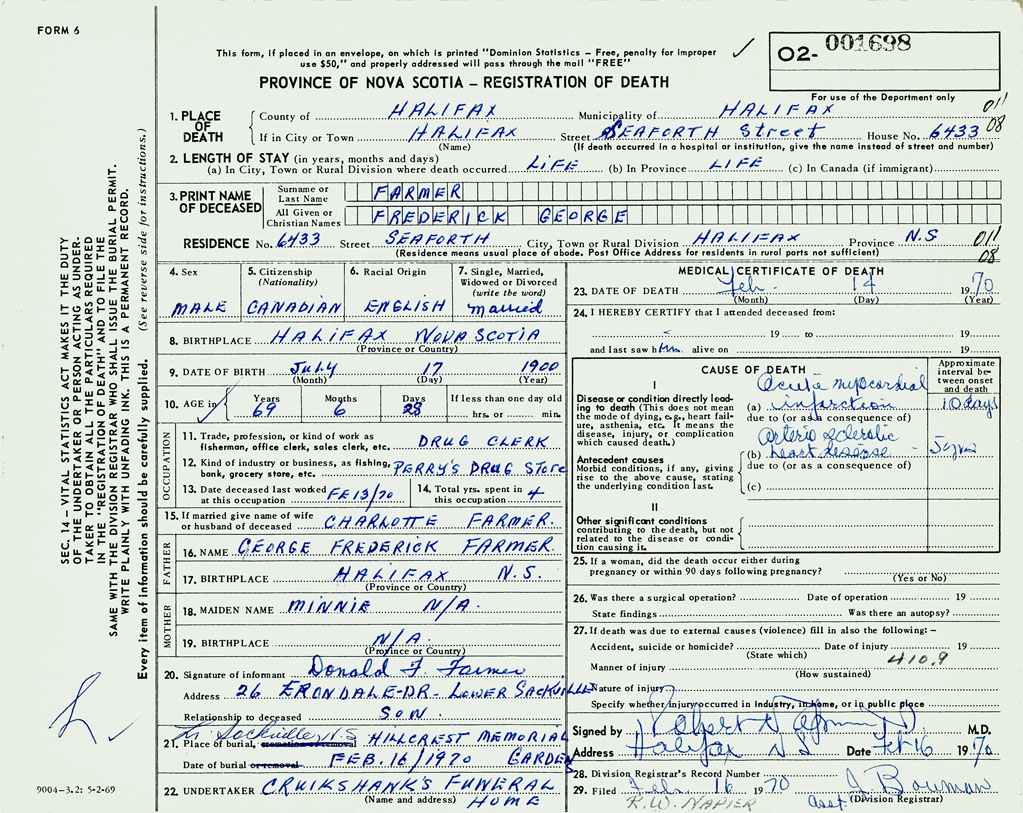 FORM 6
This form, if placed in an envelope, on which is printed "Dominion Statistics – Free, penalty for improper
use $50," and properly addressed will pass through the mail "FREE"
✓
02- 001698
PROVINCE OF NOVA SCOTIA – REGISTRATION OF DEATH
For use of the Department only
011
08
1. PLACE OF DEATH
County of HALIFAX Municipality of HALIFAX
If in City or Town HALIFAX Street SEAFORTH Street House No. 6433
(Name) (If death occurred in a hospital or institution, give the name instead of street and number)
2. LENGTH OF STAY (in years, months and days)
(a) In City, Town or Rural Division where death occurred LIFE (b) In Province LIFE (c) In Canada (if immigrant)
3. PRINT NAME OF DECEASED
Surname or Last Name FARMER
All Given or Christian Names FREDERICK GEORGE
RESIDENCE No. 6433 Street SEAFORTH City, Town or Rural Division HALIFAX Province N.S 011
(Residence means usual place of abode. Post Office Address for residents in rural parts not sufficient) 08
4. Sex
MALE
5. Citizenship (Nationality)
CANADIAN
6. Racial Origin
ENGLISH
7. Single, Married, Widowed or Divorced (write the word)
married
8. BIRTHPLACE HALIFAX NOVA SCOTIA
(Province or Country)
9. DATE OF BIRTH July 17 1900
(Month) (Day) (Year)
10. AGE ✓ Years 69 Months 6 Days 28 If less than one day old
hrs. or min.
OCCUPATION
11. Trade, profession, or kind of work as
fisherman, office clerk, sales clerk, etc. DRUG CLERK
12. Kind of industry or business, as fishing,
bank, grocery store, etc. PERRY'S DRUG STORE
13. Date deceased last worked
at this occupation FE13/70
14. Total yrs. spent in
this occupation 4
15. If married give name of wife
or husband of deceased CHARLOTTE FARMER.
FATHER
16. NAME GEORGE FREDERICK FARMER.
17. BIRTHPLACE HALIFAX N.S.
(Province or Country)
MOTHER
18. MAIDEN NAME MINNIE N/A.
19. BIRTHPLACE N/A.
(Province or Country)
20. Signature of informant Donald F. Farmer
Address 26 ERONDALE-DR- LOWER SACKVILLE
Relationship to deceased SON.
Sackville, N.S
21. Place of burial, cremation or removal HILLCREST MEMORIAL
Date of burial or removal FEB. 16/1970 GARDENS
22. UNDERTAKER CRUIKSHANK'S FUNERAL
(Name and address) HOME
MEDICAL CERTIFICATE OF DEATH
23. DATE OF DEATH Feb- 14 1970
(Month) (Day) (Year)
24. I HEREBY CERTIFY that I attended deceased from:
19 to 19
and last saw him alive on 19
CAUSE OF DEATH
Approximate interval between onset and death
I
Disease or condition directly leading to death (This does not mean the mode of dying, e.g., heart failure, asthenia, etc. It means the disease, injury, or complication which caused death.)
(a) Acute myocardial infarction 10 days
due to (or as a consequence of)
Antecedent causes
Morbid conditions, if any, giving rise to the above cause, stating the underlying condition last.
(b) Arterio sclerotic heart disease - 5 yrs
due to (or as a consequence of)
(c)
II
Other significant conditions
contributing to the death, but not
related to the disease or condition causing it.
25. If a woman, did the death occur either during
pregnancy or within 90 days following pregnancy?
(Yes or No)
26. Was there a surgical operation? Date of operation 19
State findings Was there an autopsy?
27. If death was due to external causes (violence) fill in also the following: –
Accident, suicide or homicide? Date of injury 19
(State which) 410.9
Manner of injury
(How sustained)
Nature of injury
Specify whether injury occurred in industry, in home, or in public place
Signed by Robert M.D.
Address Halifax NS Date Feb 16 1970
28. Division Registrar's Record Number
29. Filed Feb. 16 1970 J Bowman
R.W. NAPIER Asst. (Division Registrar)
SEC. 14 – VITAL STATISTICS ACT MAKES IT THE DUTY
OF THE UNDERTAKER OR PERSON ACTING AS UNDER-
TAKER TO OBTAIN ALL THE PARTICULARS REQUIRED
IN THE "REGISTRATION OF DEATH" AND TO FILE THE
SAME WITH THE DIVISION REGISTRAR WHO SHALL ISSUE THE BURIAL PERMIT.
WRITE PLAINLY WITH UNFADING INK. THIS IS A PERMANENT RECORD.
Every item of information should be carefully supplied. (See reverse side for instructions.)
9004-3.2: 5-2-69